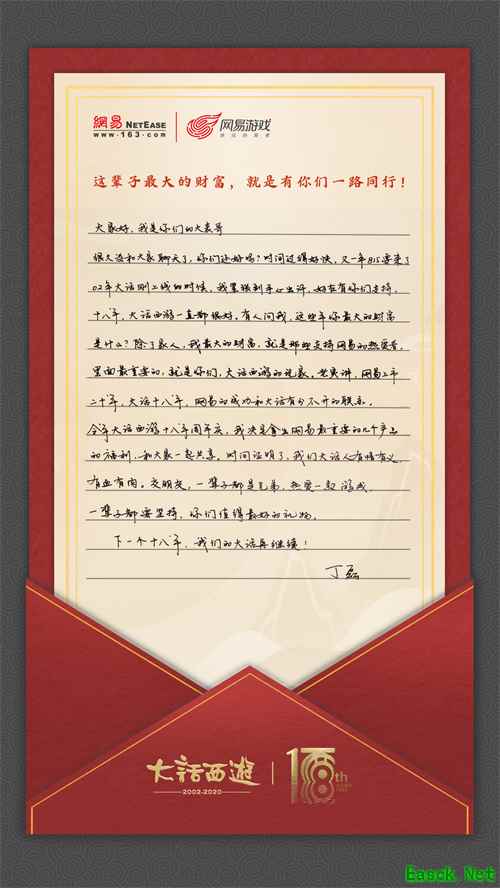 網易 NETEASE
www.163.com
网易游戏
这辈子最大的财富，就是有你们一路同行！
大家好，我是你们的大表哥
很久没和大家聊天了，你们还好吗？时间过得好快，又一年815要来了
02年大话刚上线的时候，我紧张到手心出汗，好在有你们支持，
十八年，大话西游一直都很好，有人问我，这些年你最大的财富
是什么？除了家人，我最大的财富，就是那些支持网易的热爱者，
里面最重要的，就是你们，大话西游的玩家。老实讲，网易上市
二十年，大话十八年，网易的成功和大话有分不开的联系。
今年大话西游十八周年庆，我决定拿出网易最重要的几个产品
的福利，和大家一起共享。时间证明了，我们大话人有情有义，
有血有肉。交朋友，一辈子都是兄弟，热爱一款游戏，
一辈子都要坚持，你们值得最好的礼物。
下一个十八年，我们的大话再继续！
丁磊
大话西遊
2002-2020
18th
Easck Net